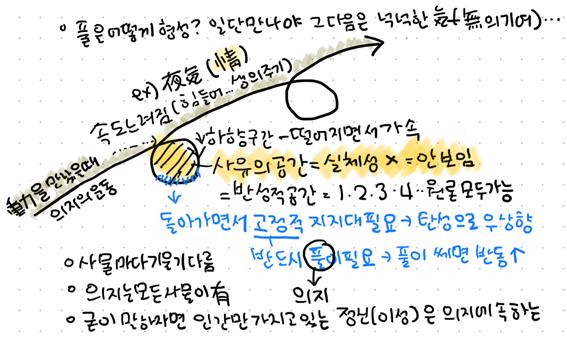 풀은어떻게 형성? 일단만나야 그다음은 넉넉한 氣(無의기여)...
ex) 夜氣(情)
속도느려짐 (힘들어... 생의주기)
하향구간 - 떨어지면서가속
사유의공간 = 실체성 × = 안보임
力을만났을때
의지의운동
= 반성적공간 = 1·2·3·4· 원론모두가능
돌아가면서 고정적 지지대필요 → 탄성으로 우상향
반드시 풀이필요 → 풀이 쎄면 반동↑
사물마다기울기다름
의지는모든사물이有
의지
굳이 말하자면 인간만가지고있는 정신(이성)은 의지에속하는